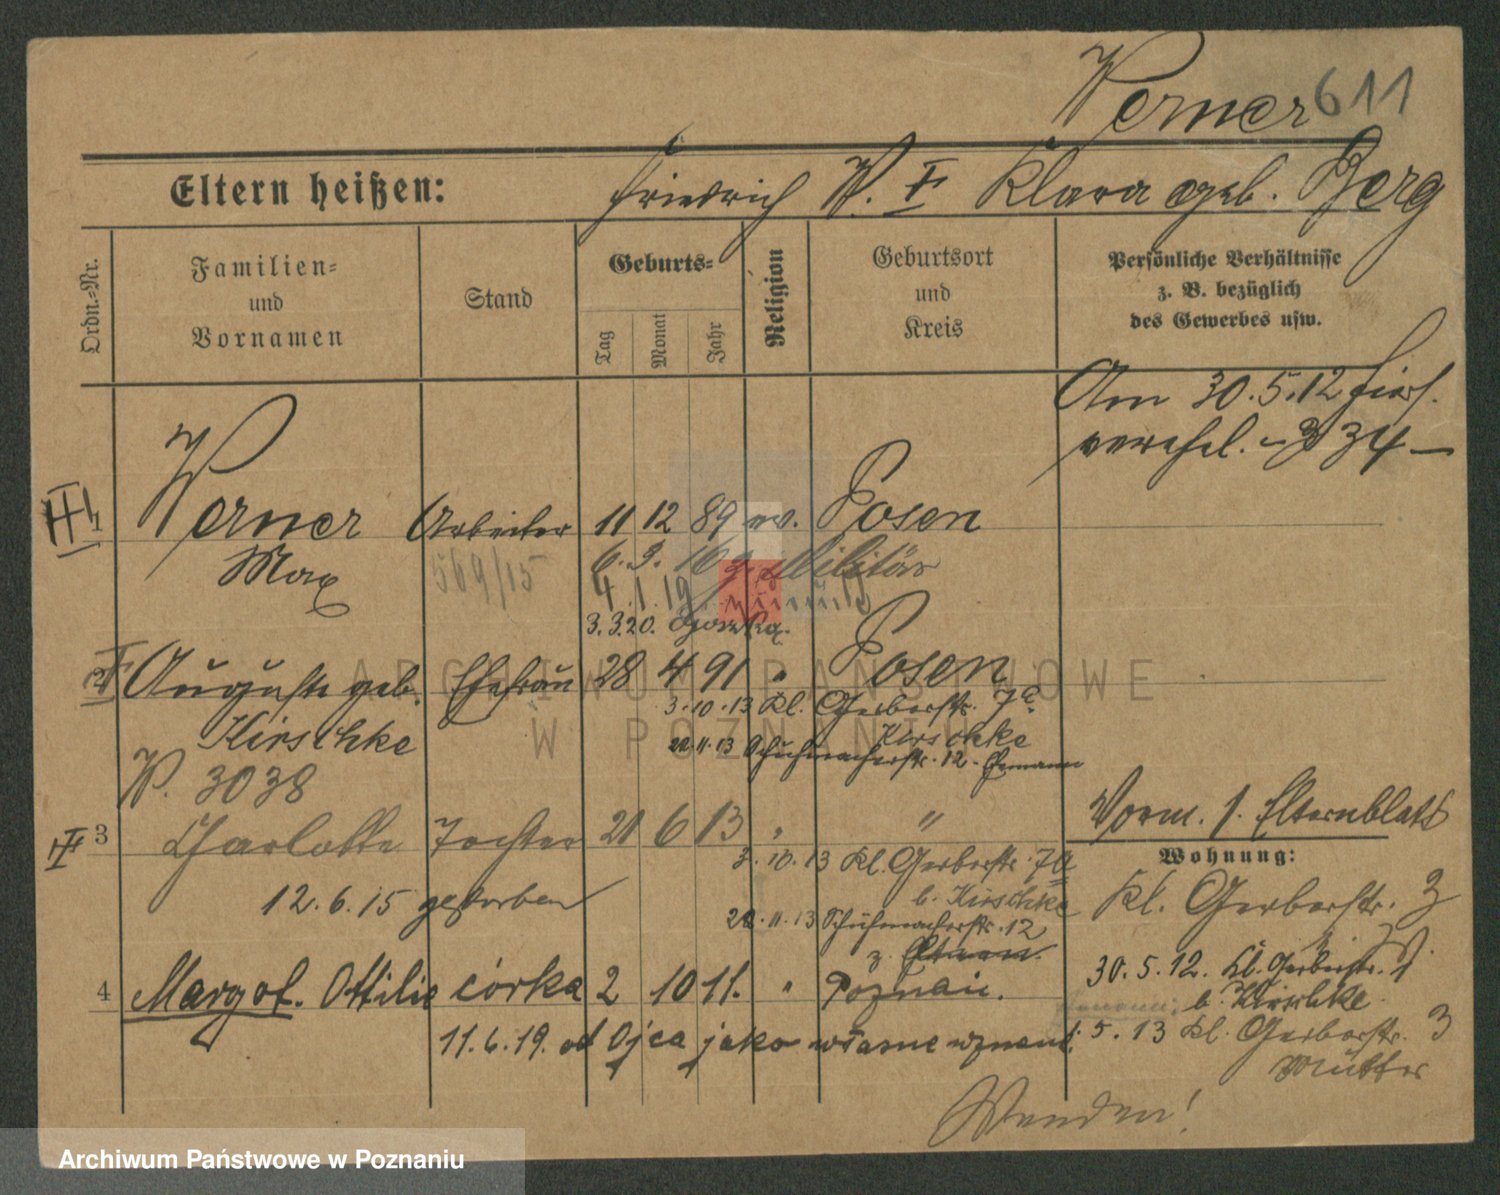 Werner 611
Eltern heißen: Friedrich W. Klara geb. Berg
Ordn.=Nr.
Familien=
und
Vornamen
Stand
Geburts=
Tag
Monat
Jahr
Religion
Geburtsort
und
Kreis
Persönliche Verhältnisse
z. B. bezüglich
des Gewerbes usw.
Am 30.5.12 hier
verehel. 34
1 Werner Arbeiter 11 12 89 ev. Posen
Max 569/15 6. 3. 16 z. Militär
4. 1. 19
3.3.20.
2 Auguste geb. Ehefrau 28 4 91 " Posen
Kirschke 3.10.13 Kl. Gerberstr. 7a
Kirschke
22.11.13 Schuhmacherstr. 12 Ehemann
W. 3038
3 Charlotte Tochter 21 6 13 " "
3.10.13 Kl. Gerberstr. 7a
b. Kirschke
12.6.15 gestorben
22.11.13 Schuhmacherstr. 12
z. Eltern.
4 Margot. Ottilie córka 2 10 11. " Poznań.
11.6.19. od Ojca jako własne uznane
Vorm. s. Elternblatt
Wohnung:
Kl. Gerberstr. 3
30.5.12. Kl. Gerberstr.
b. Kirschke
5.13 Kl. Gerberstr. 3
Mutter
Wenden!
ARCHIWUM PAŃSTWOWE
W POZNANIU
Archiwum Państwowe w Poznaniu